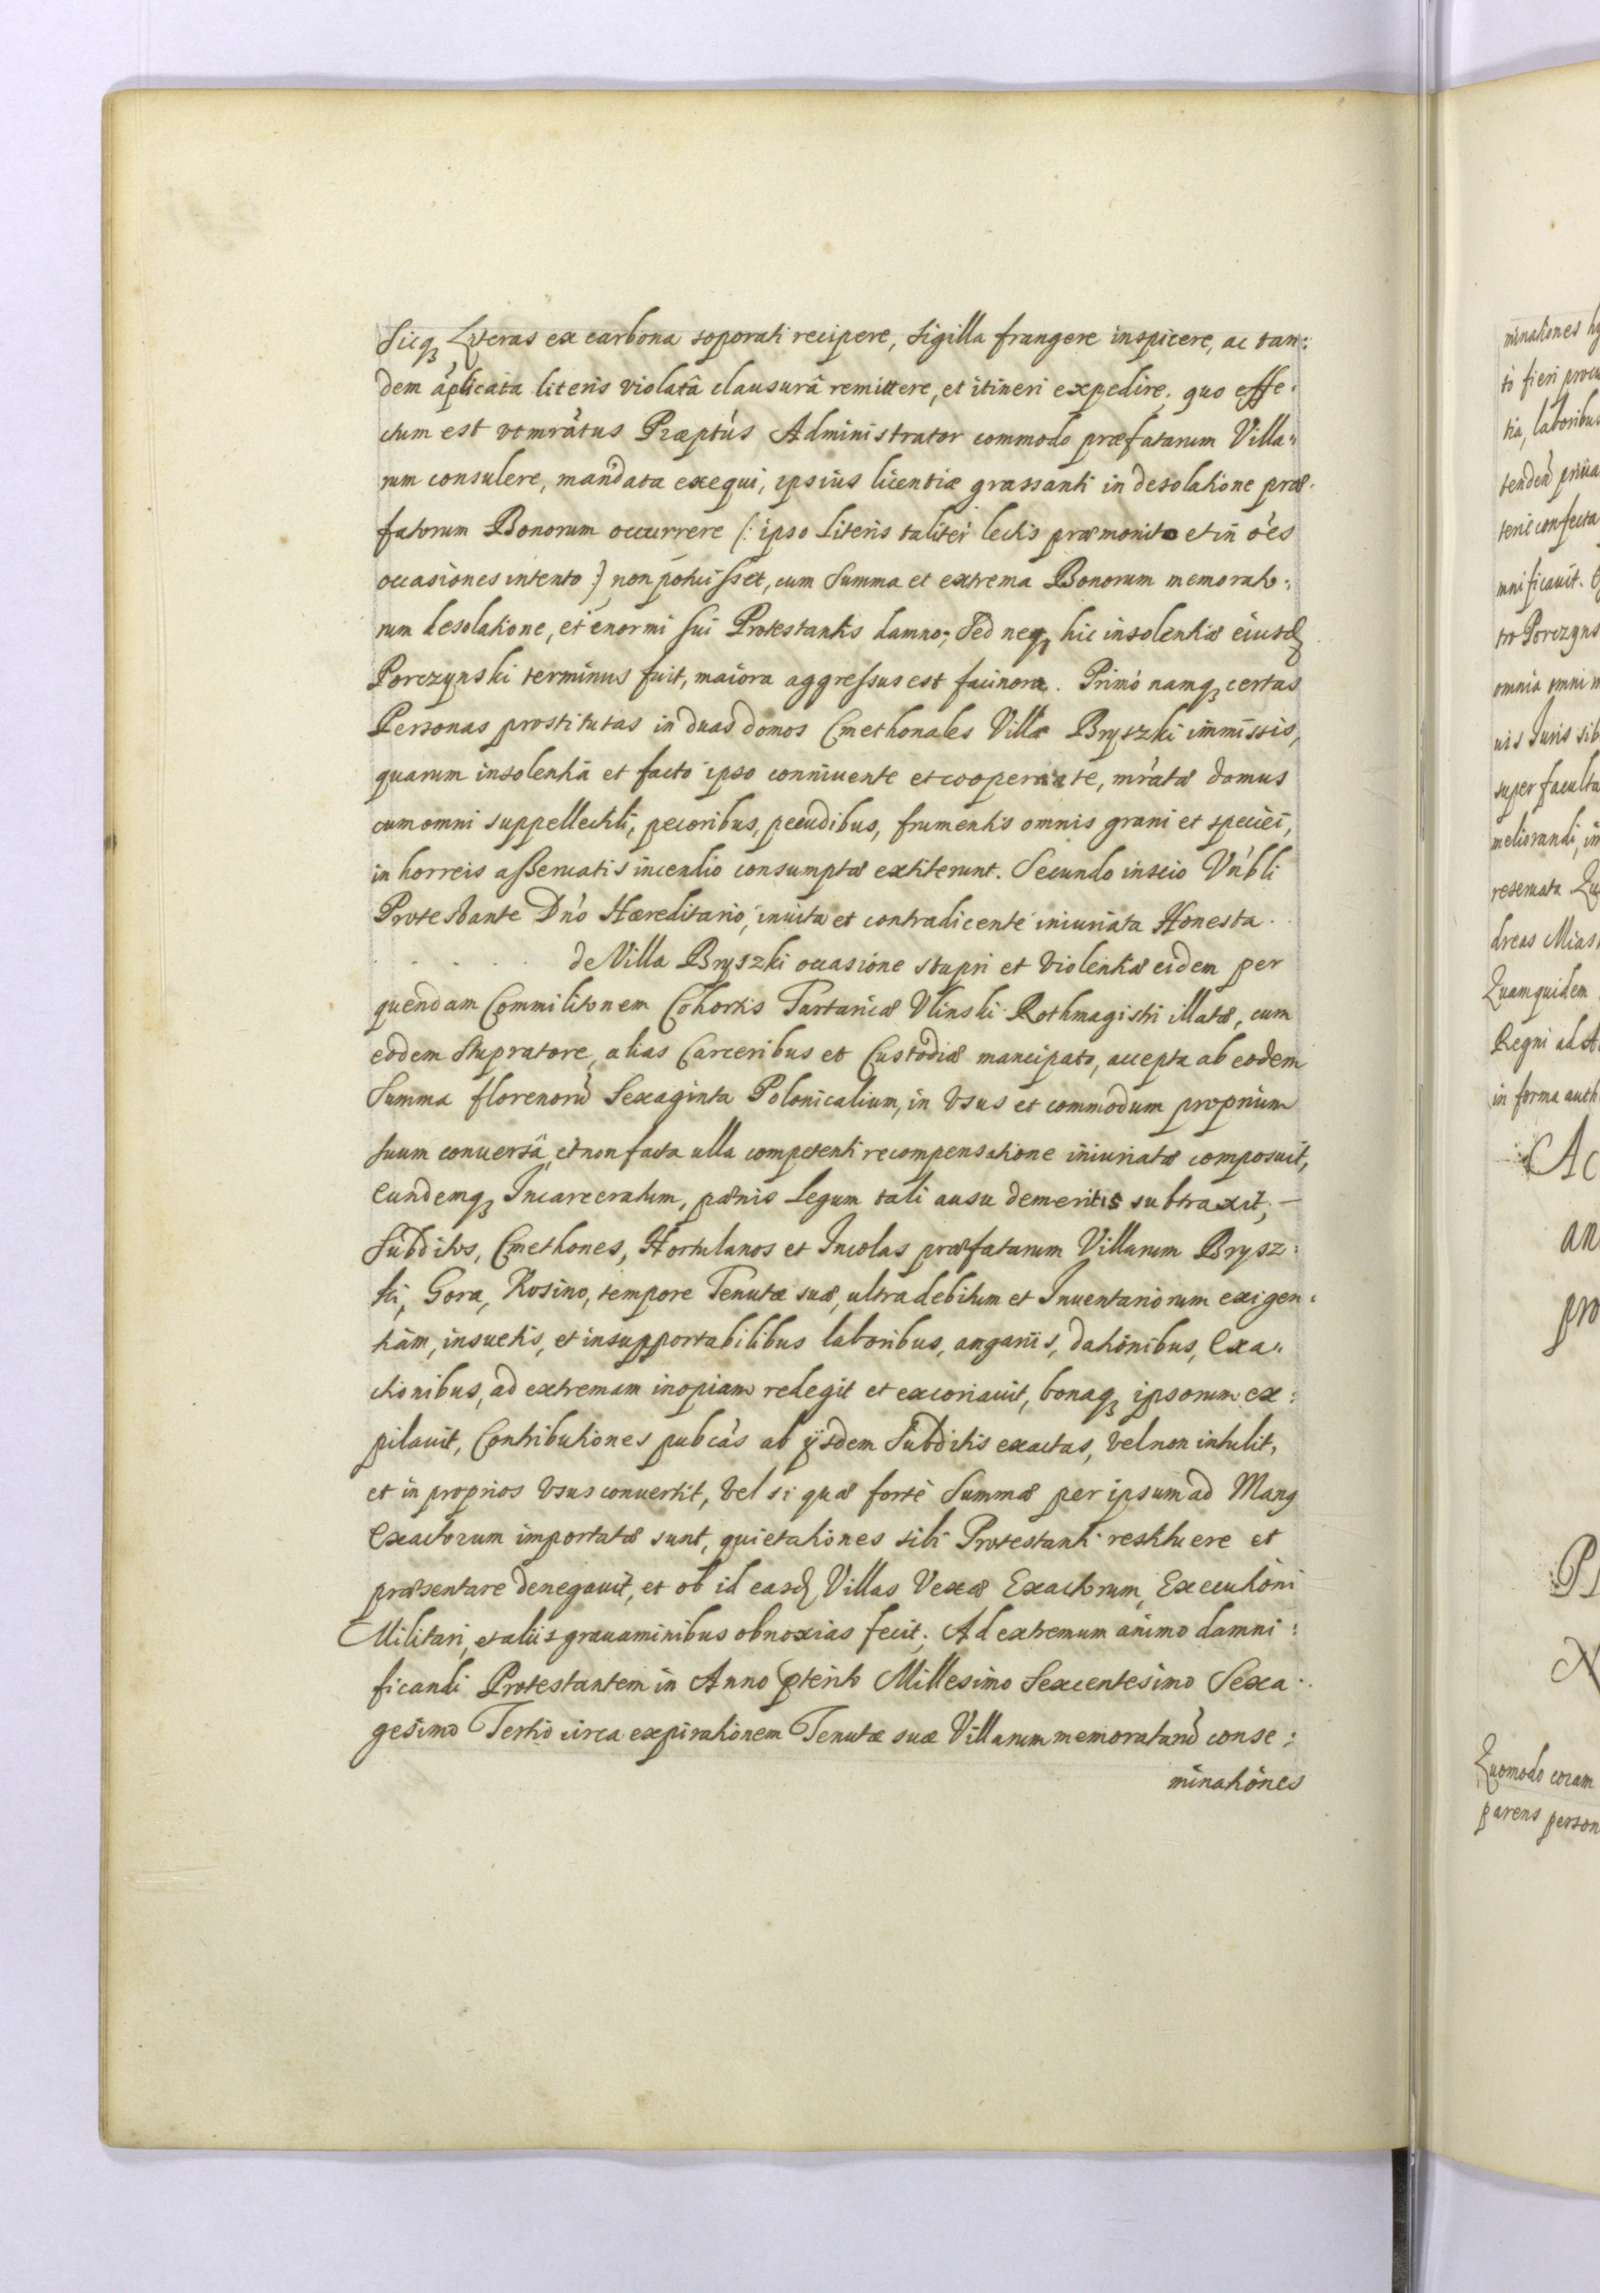 Sicq Lr̃eras ex carbona soporati recipere, sigilla frangere inspicere, ac tan:
dem ãplicata literis violatâ clausurâ remittere, et itineri expedire, quo effe:
ctum est vt mr̃atus Præptùs Administrator commodo præfatarum Villa:
rum consulere, mandata exequi, ipsius licentiæ grassanti in desolatione præ:
fatorum Bonorum occurrere (: ipso literis taliter lectis præmonito et iñ oẽs
occasiones intento :) non potuisset, cum summa et extrema Bonorum memorato:
rum desolatione, et enormi sui Protestantis damno; Sed neq hic insolentiæ eiusd
Porczynski terminus fuit, maiora aggressus est facinora. Primò namq certas
Personas prostitutas in duas domos Cmethonales Villæ Bryszki immissis,
quarum insolentiã et facto ipso conniuente et cooperante, mr̃atæ domus
cum omni suppellectili, pecoribus, pecudibus, frumentis omnis grani et speciei,
in horreis asseruatis incendio consumptæ extiterunt. Secundo inscio Vñbli
Protestante Dño Hæreditario, inuita et contradicente iniuriata Honesta . .
. . . . . de Villa Bryszki occasione stupri et violentiæ eidem per
quendam Commilitonem Cohortis Tartaricæ Vlinski Rothmagistri illatæ, cum
eodem stupratore, alias Carceribus et Custodiæ mancipato, accepta ab eodem
Summa florenorũ Sexaginta Polonicalium, in vsus et commodum proprium
suum conuersã, et non facta ulla competenti recompensatione iniuriatæ composuit,
Eundemq Incarceratum, pænis Legum tali ausu demeritis subtraxit, –
Subditos, Cmethones, Hortulanos et Incolas præfatarum Villarum Brysz:
ki, Gora, Rosino, tempore Tenutæ suæ, ultra debitum et Inuentariorum exigen:
tiam, insuetis, et insupportabilibus laboribus, angariis, dationibus, Exa:
ctionibus, ad extremam inopiam redegit et excoriauit, bonaq ipsorum ex:
pilauit, Contributiones pubcàs ab ÿsdem Subditis exactas, vel non intulit,
et in proprios vsus conuertit, vel si quæ fortè Summæ per ipsum ad Mang
Exactorum importatæ sunt, quietationes sibi Protestanti restituere et
præsentare denegauit, et ob id easd Villas Vexæ Exactorum, Executioni
Militari, et aliis grauaminibus obnoxias fecit. Ad extremum animo damni:
ficandi Protestantem in Anno pterito Millesimo Sexcentesimo Sexa:
gesimo Tertio circa expirationem Tenutæ suæ Villarum memoratarũ conse:
minationes